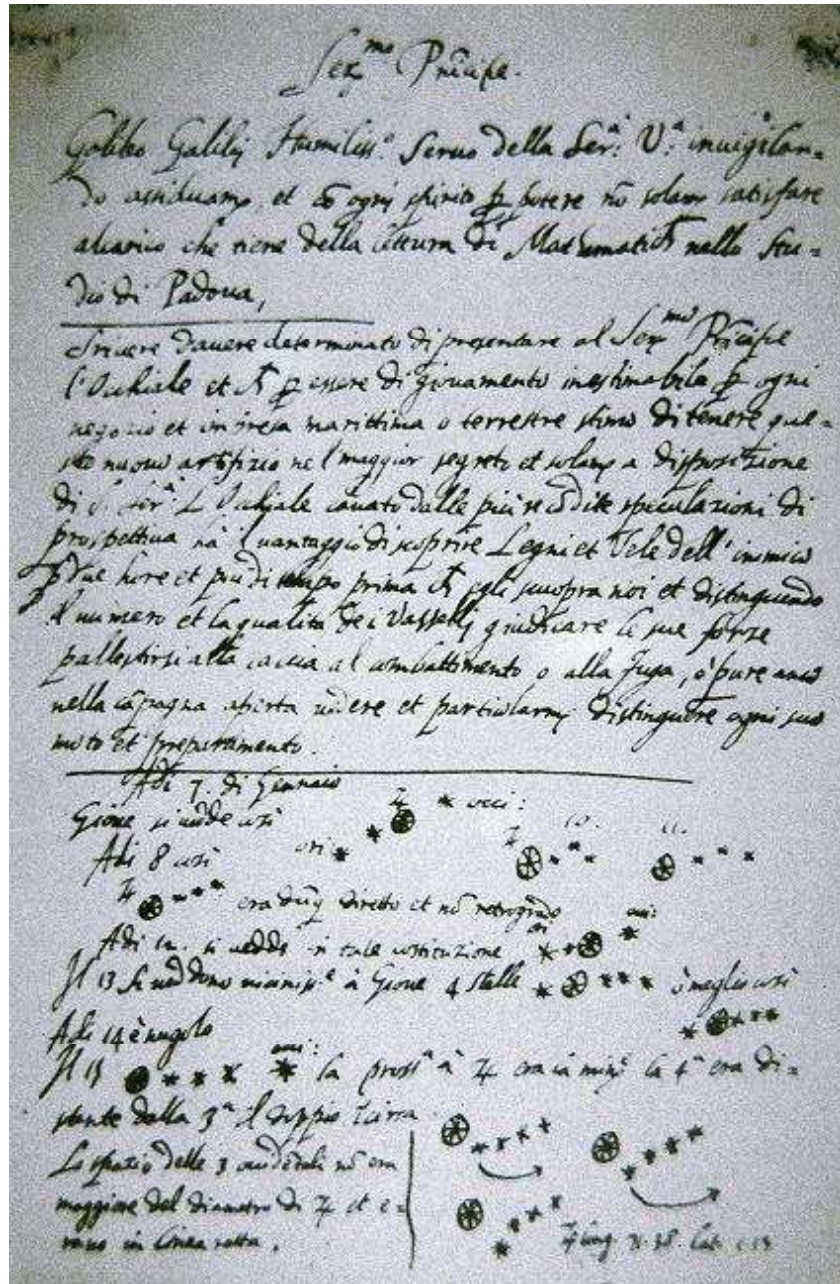 Ser.mo Prīcipe.
Galileo Galilej Humiliss.o Servo della Ser.a V.a inuigilan=
do assiduam.e, et cō ogni spirito ꝑ potere nō solam.e satisfare
alcarico che tiene della lettura di Mathematich nello Stu=
dio di Padoua,
Scriuere dauere determinato di presentare al Ser.mo Prīcipe
l'Occhiale et ꝑ essere di giouamento inestimabile ꝑ ogni
negozio et impresa marittima o terrestre stimo di tenere que=
sto nuouo artifizio nel maggior segreto et solam.e a disposizione
di S. Ser.a L'Occhiale cauato dalle più recōdite speculazioni di
prospettiua hà il uantaggio di scoprire Legni et Vele dell'inimico
ꝑ due hore et più di tempo prima ch egli scuopra noi et distinguendo
il numero et la qualità de i Vasselli giudicare le sue forze
pallestirsi alla caccia al combattimento o alla fuga, ò pure anco
nella cāpagna aperta uedere et particolarm.e distinguere ogni suo
moto et preparamento.
Adi 7. di Gennaio
Gioue si uede così ♃ occi:
Adi 8 così ori ♃ 10. 11.
♃ era dūq diretto et nō retrogrado
Adi 12. si uedde in tale costituzione occi:
Il 13 si ueddono uiciniss.e à Gioue 4 stelle ò meglio così
Adi 14 è nugolo
Il 15 occi: la pross.a à ♃ era la min.e la 4.a era di=
stante dalla 3.a il doppio circa
Lo spatio delle 3 occidētali nō era
maggiore del diametro di ♃ et e=
rano in linea retta.
♃ long. 71.38 Lat. 1.13